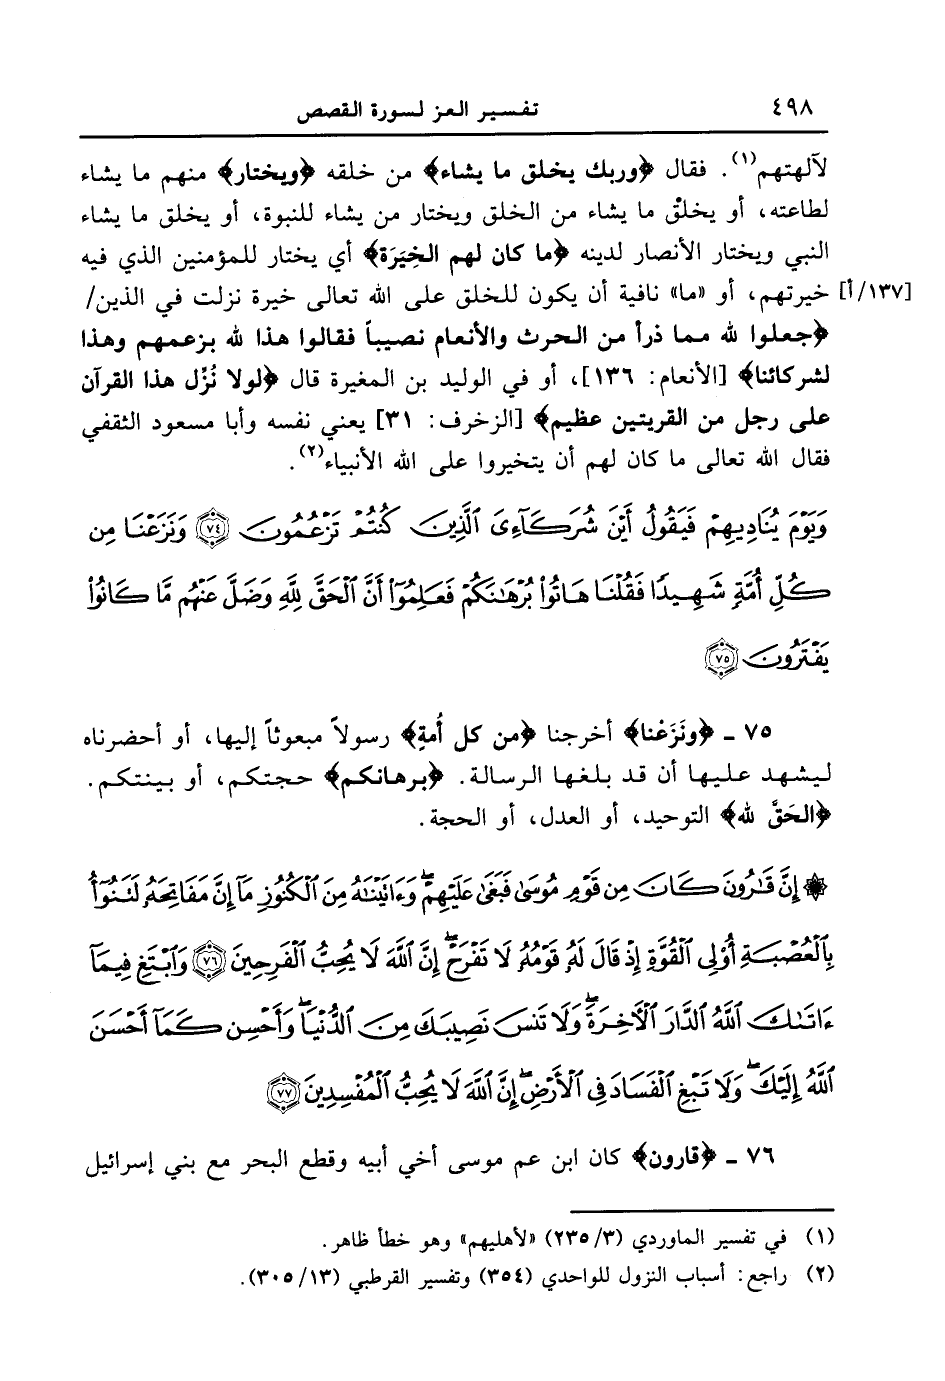 ٤٩٨ تفسير العز لسورة القصص
لآلهتهم(١). فقال ﴿وربك يخلق ما يشاء﴾ من خلقه ﴿ويختار﴾ منهم ما يشاء
لطاعته، أو يخلقُ ما يشاء من الخلق ويختار من يشاء للنبوة، أو يخلق ما يشاء
النبي ويختار الأنصار لدينه ﴿ما كان لهم الخِيَرَة﴾ أي يختار للمؤمنين الذي فيه
[١٣٧/أ] خيرتهم، أو «ما» نافية أن يكون للخلق على الله تعالى خيرة نزلت في الذين/
﴿جعلوا لله مما ذرأ من الحرث والأنعام نصيباً فقالوا هذا لله بزعمهم وهذا
لشركائنا﴾ [الأنعام: ١٣٦]، أو في الوليد بن المغيرة قال ﴿لولا نُزِّل هذا القرآن
على رجل من القريتين عظيم﴾ [الزخرف: ٣١] يعني نفسه وأبا مسعود الثقفي
فقال الله تعالى ما كان لهم أن يتخيروا على الله الأنبياء(٢).
وَيَوْمَ يُنَادِيهِمْ فَيَقُولُ أَيْنَ شُرَكَآءِىَ ٱلَّذِينَ كُنتُمْ تَزْعُمُونَ ۝٧٤ وَنَزَعْنَا مِن
كُلِّ أُمَّةٍ شَهِيدًا فَقُلْنَا هَاتُوا۟ بُرْهَٰنَكُمْ فَعَلِمُوٓا۟ أَنَّ ٱلْحَقَّ لِلَّهِ وَضَلَّ عَنْهُم مَّا كَانُوا۟
يَفْتَرُونَ ۝٧٥
٧٥ ـ ﴿ونَزَعْنا﴾ أخرجنا ﴿من كل أُمةٍ﴾ رسولاً مبعوثاً إليها، أو أحضرناه
ليشهد عليها أن قد بلغها الرسالة. ﴿برهانكم﴾ حجتكم، أو بينتكم.
﴿الحَقَّ لله﴾ التوحيد، أو العدل، أو الحجة.
۞ إِنَّ قَٰرُونَ كَانَ مِن قَوْمِ مُوسَىٰ فَبَغَىٰ عَلَيْهِمْ ۖ وَءَاتَيْنَٰهُ مِنَ ٱلْكُنُوزِ مَآ إِنَّ مَفَاتِحَهُۥ لَتَنُوٓأُ
بِٱلْعُصْبَةِ أُو۟لِى ٱلْقُوَّةِ إِذْ قَالَ لَهُۥ قَوْمُهُۥ لَا تَفْرَحْ ۖ إِنَّ ٱللَّهَ لَا يُحِبُّ ٱلْفَرِحِينَ ۝٧٦ وَٱبْتَغِ فِيمَآ
ءَاتَىٰكَ ٱللَّهُ ٱلدَّارَ ٱلْءَاخِرَةَ ۖ وَلَا تَنسَ نَصِيبَكَ مِنَ ٱلدُّنْيَا ۖ وَأَحْسِن كَمَآ أَحْسَنَ
ٱللَّهُ إِلَيْكَ ۖ وَلَا تَبْغِ ٱلْفَسَادَ فِى ٱلْأَرْضِ ۖ إِنَّ ٱللَّهَ لَا يُحِبُّ ٱلْمُفْسِدِينَ ۝٧٧
٧٦ ـ ﴿قارون﴾ كان ابن عم موسى أخي أبيه وقطع البحر مع بني إسرائيل
(١) في تفسير الماوردي (٢٣٥/٣) «لأهليهم» وهو خطأ ظاهر.
(٢) راجع: أسباب النزول للواحدي (٣٥٤) وتفسير القرطبي (٣٠٥/١٣).